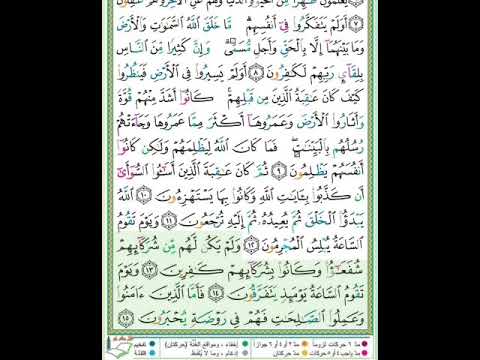 يَعْلَمُونَ ظَٰهِرًا مِّنَ ٱلْحَيَوٰةِ ٱلدُّنْيَا وَهُمْ عَنِ ٱلْءَاخِرَةِ هُمْ غَٰفِلُونَ
٧ أَوَلَمْ يَتَفَكَّرُوا۟ فِىٓ أَنفُسِهِم ۗ مَّا خَلَقَ ٱللَّهُ ٱلسَّمَٰوَٰتِ وَٱلْأَرْضَ
وَمَا بَيْنَهُمَآ إِلَّا بِٱلْحَقِّ وَأَجَلٍ مُّسَمًّى ۗ وَإِنَّ كَثِيرًا مِّنَ ٱلنَّاسِ
بِلِقَآئِ رَبِّهِمْ لَكَٰفِرُونَ ٨ أَوَلَمْ يَسِيرُوا۟ فِى ٱلْأَرْضِ فَيَنظُرُوا۟
كَيْفَ كَانَ عَٰقِبَةُ ٱلَّذِينَ مِن قَبْلِهِمْ ۚ كَانُوٓا۟ أَشَدَّ مِنْهُمْ قُوَّةً
وَأَثَارُوا۟ ٱلْأَرْضَ وَعَمَرُوهَآ أَكْثَرَ مِمَّا عَمَرُوهَا وَجَآءَتْهُمْ
رُسُلُهُم بِٱلْبَيِّنَٰتِ ۖ فَمَا كَانَ ٱللَّهُ لِيَظْلِمَهُمْ وَلَٰكِن كَانُوٓا۟
أَنفُسَهُمْ يَظْلِمُونَ ٩ ثُمَّ كَانَ عَٰقِبَةَ ٱلَّذِينَ أَسَٰٓـُٔوا۟ ٱلسُّوٓأَىٰٓ
أَن كَذَّبُوا۟ بِـَٔايَٰتِ ٱللَّهِ وَكَانُوا۟ بِهَا يَسْتَهْزِءُونَ ١٠ ٱللَّهُ
يَبْدَؤُا۟ ٱلْخَلْقَ ثُمَّ يُعِيدُهُۥ ثُمَّ إِلَيْهِ تُرْجَعُونَ ١١ وَيَوْمَ تَقُومُ
ٱلسَّاعَةُ يُبْلِسُ ٱلْمُجْرِمُونَ ١٢ وَلَمْ يَكُن لَّهُم مِّن شُرَكَآئِهِمْ
شُفَعَٰٓؤُا۟ وَكَانُوا۟ بِشُرَكَآئِهِمْ كَٰفِرِينَ ١٣ وَيَوْمَ
تَقُومُ ٱلسَّاعَةُ يَوْمَئِذٍ يَتَفَرَّقُونَ ١٤ فَأَمَّا ٱلَّذِينَ ءَامَنُوا۟
وَعَمِلُوا۟ ٱلصَّٰلِحَٰتِ فَهُمْ فِى رَوْضَةٍ يُحْبَرُونَ ١٥
مدّ ٦ حركات لزوماً مدّ ٢ أو ٤ أو ٦ جوازاً إخفاء، ومواقع الغُنَّة (حركتان) تفخيم
مدّ واجب ٤ أو ٥ حركات مدّ حركتان إدغام، وما لا يُلفظ قلقلة